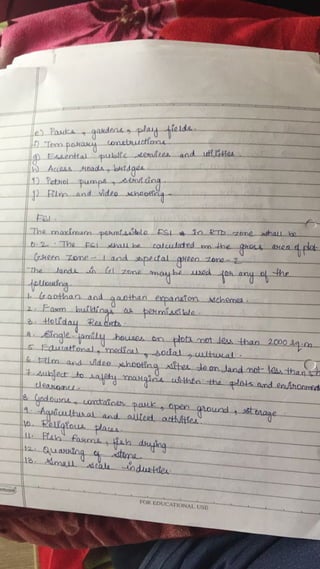 e) Parks, gardens, play fields.
f) Temporary constructions
g) Essential public services and utilities.
h) Access roads, bridges
i) Petrol pumps, servicing
j) Film and video shooting.
FSI.
The maximum permissible FSI in RTD zone shall be
0.2. The FSI shall be calculated on the gross area of plot
Green Zone - 1 and special green zone - 2
The lands in G1 zone maybe used for any of the
following
1. Gaothan and gaothan expansion schemes.
2. Farm buildings as permissible.
3. Holiday Resorts
4. Single-family houses on plots not less than 2000 sq.m
5. Educational, medical, social, cultural.
6. Film and video shooting sites on land not less than
7. subject to safety margins within the plots and environment
clearance.
8. Godowns, container park, open ground, storage
9. Agricultural and allied activities.
10. Religious places
11. Fish Farms, fish drying
12. Quarrying of stone
13. Small scale industries
FOR EDUCATIONAL USE